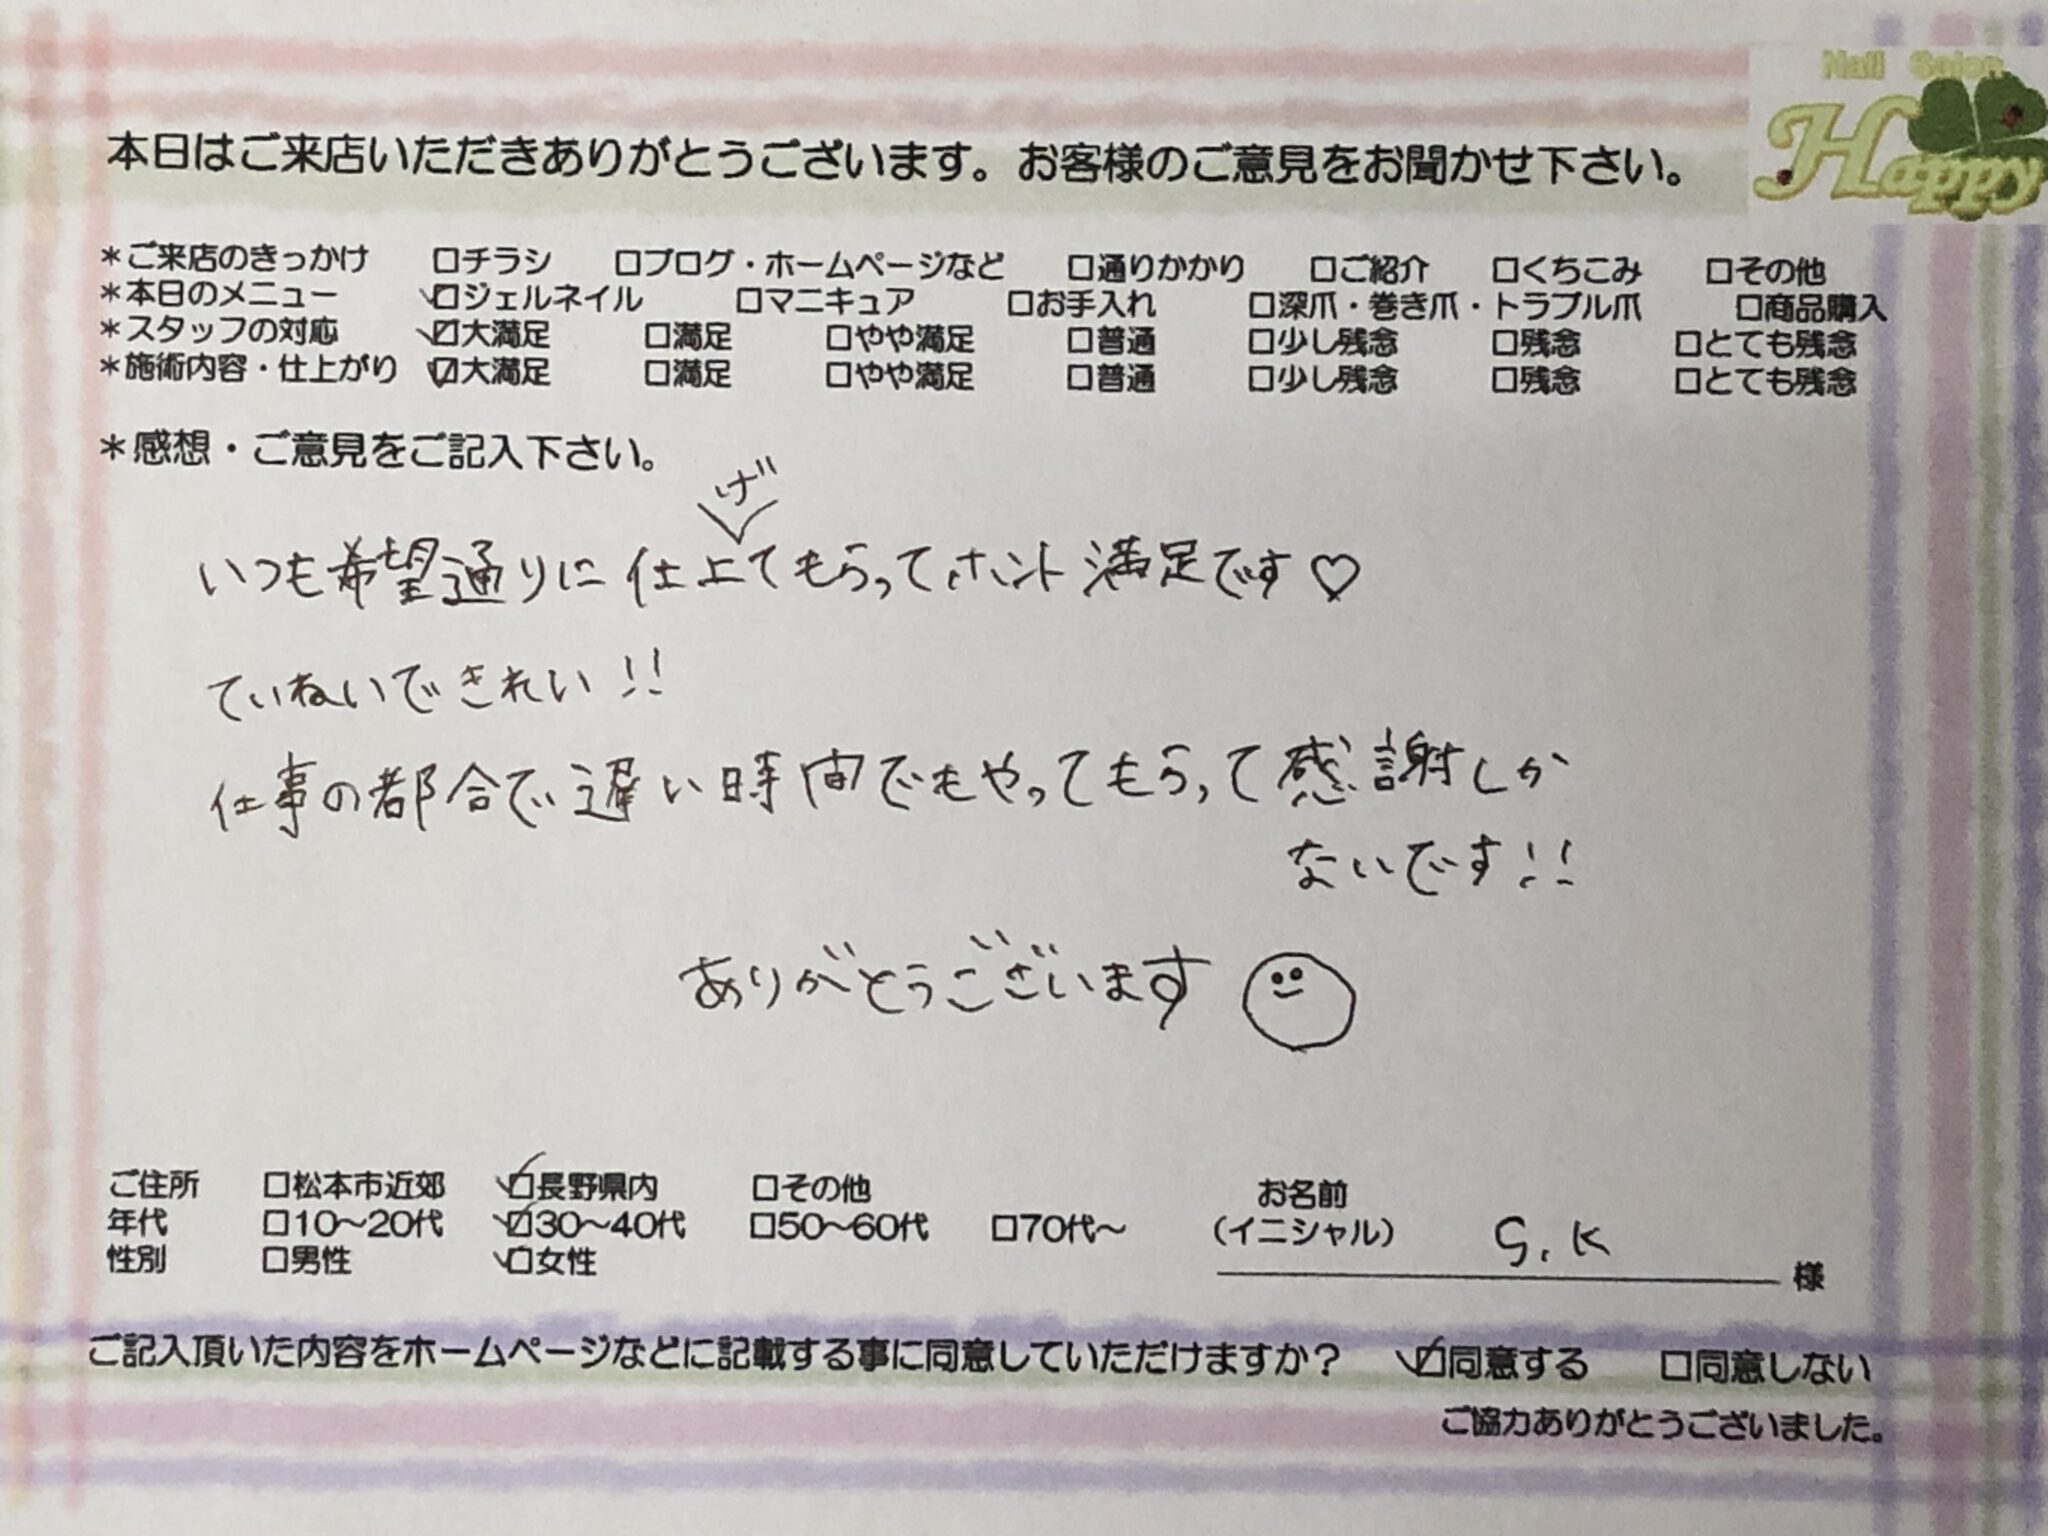 Nail Salon
Happy
本日はご来店いただきありがとうございます。お客様のご意見をお聞かせ下さい。
*ご来店のきっかけ □チラシ □ブログ・ホームページなど □通りかかり □ご紹介 □くちこみ □その他
*本日のメニュー ☑ジェルネイル □マニキュア □お手入れ □深爪・巻き爪・トラブル爪 □商品購入
*スタッフの対応 ☑大満足 □満足 □やや満足 □普通 □少し残念 □残念 □とても残念
*施術内容・仕上がり ☑大満足 □満足 □やや満足 □普通 □少し残念 □残念 □とても残念
*感想・ご意見をご記入下さい。
いつも希望通りに仕上げてもらってホント満足です♡
ていねいできれい!!
仕事の都合で遅い時間でもやってもらって感謝しか
ないです!!
ありがとうございます
ご住所 □松本市近郊 ☑長野県内 □その他 お名前
年代 □10〜20代 ☑30〜40代 □50〜60代 □70代〜 (イニシャル) S.K 様
性別 □男性 ☑女性
ご記入頂いた内容をホームページなどに記載する事に同意していただけますか? ☑同意する □同意しない
ご協力ありがとうございました。